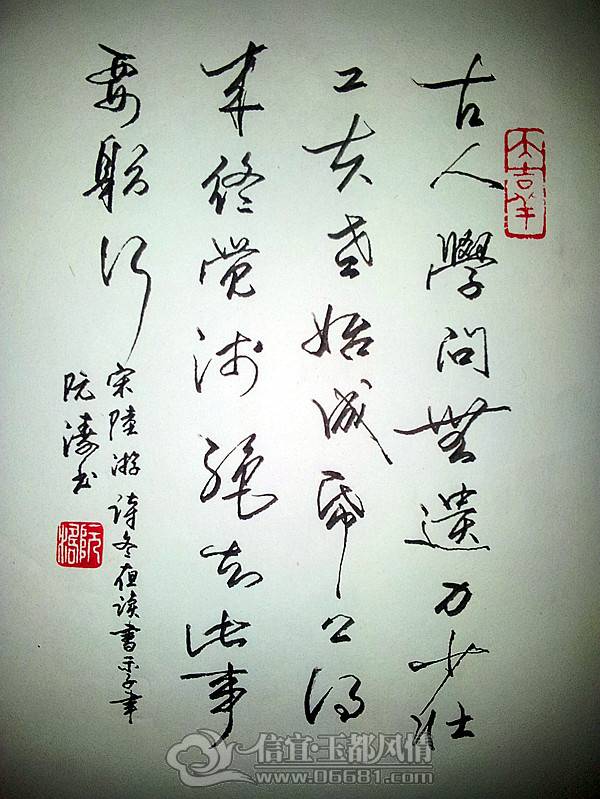 古人學問無遺力少壯
工夫老始成帋上得
来終覺淺絕知此事
要躬行
宋陸游詩冬夜读書示子聿
阮濤书
大吉羊
信宜·玉都风情
www.06681.com